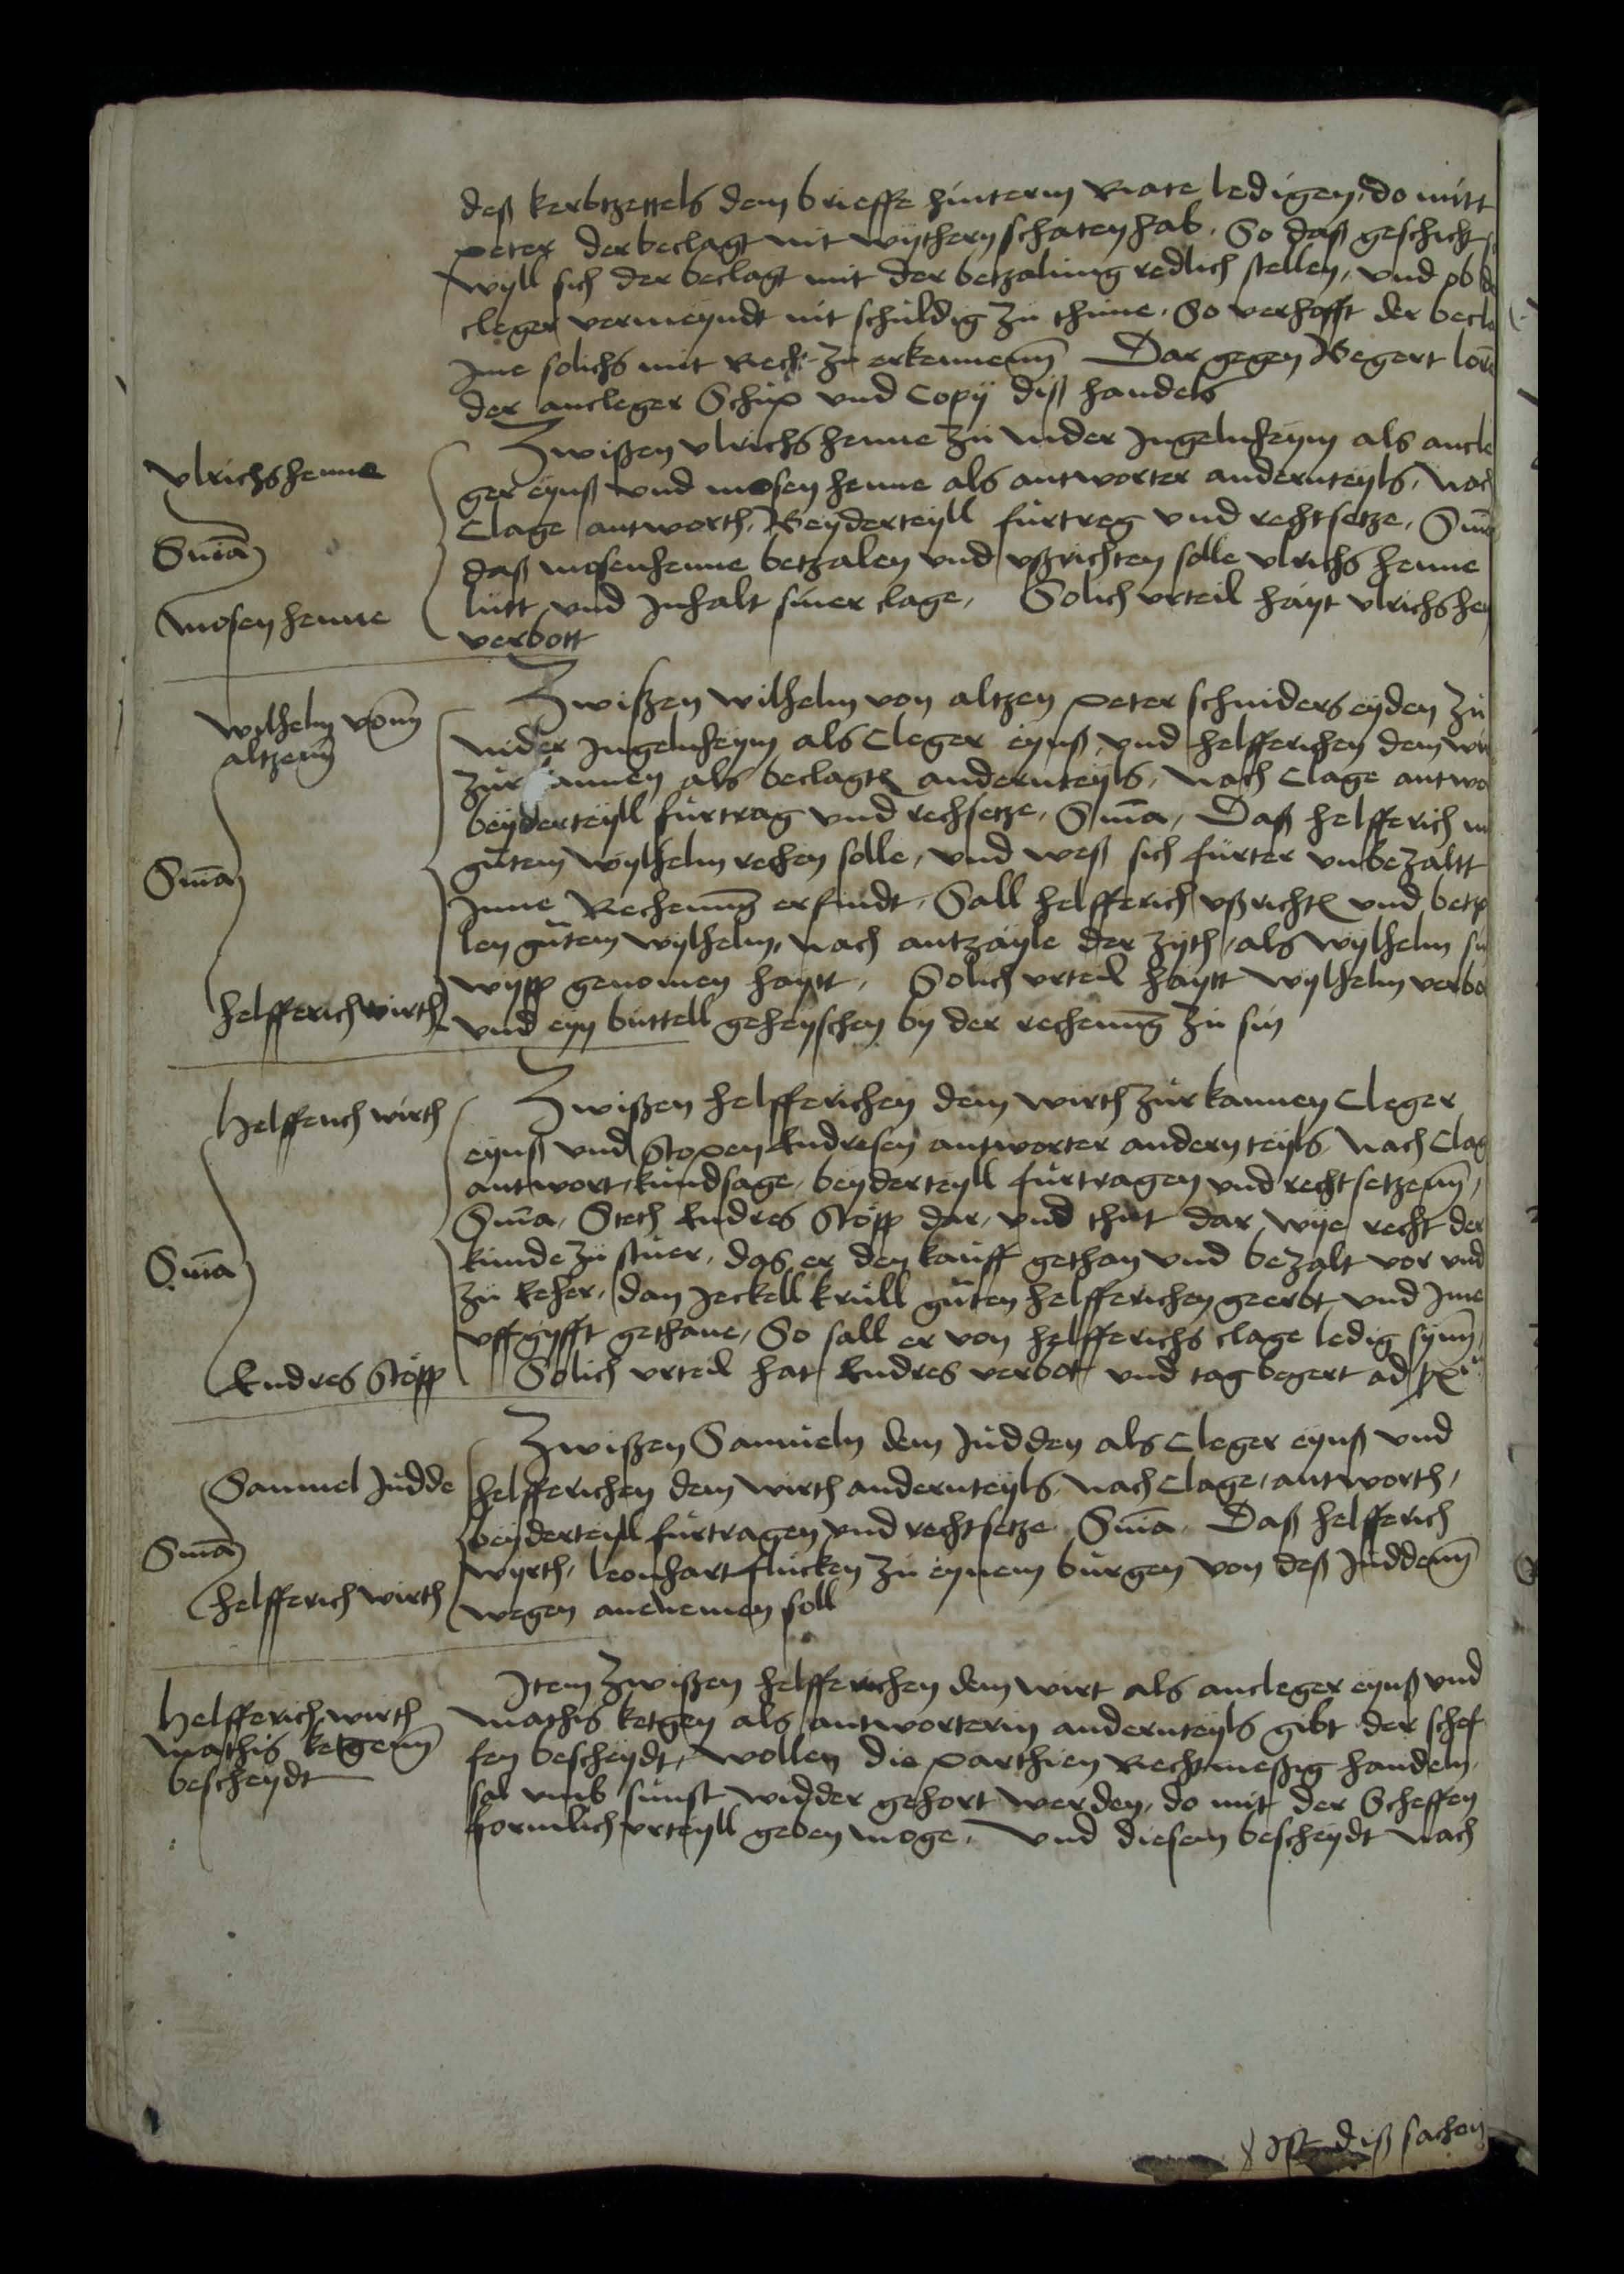 deß kerbtzettels dem brieffe hinterm Rate ledigen, do mitt
peter der beclagt nit wythern schaten hab. So daß geschicht
wyll sich der beclagt mit der betzalung redlich stellen, und ob
cleger vermeyndt nit schuldig zu thune. So verhofft der becla
Ime solichs mit Recht zu erkennenn Dar gegen Begert
der ancleger Schub und Copy diß handels
Zwißen ulrichs henne zu nider Ingelnheym als ancle
ger eynß und mosen henne als antworter andernteyls, Nach
Clage antworth, Beyderteyll furtreg und rechtsetze, Sma
daß mosenhenne betzalen und ußrichten solle ulrichs henne
lutt und Inhalt siner clage, Solich urteil hayt ulrichs hen
verbott
ulrichs henne
Sma
mosen henne
Zwißen wilhelm von altzen peter schniders eyden zu
nider Ingelnheym als Cleger eynß, und helfferichen dem wir
zur kannen als beclagten andernteyls, Nach Clage antwo
beyderteyll furtrag und rechsetze, Sma, Daß helfferich mi
gutem wylhelm rechen solle, und weß sich furter unbezaltt
Inne Rechenung erfindt, Sall helfferich ußrichten und betza
len gutem wylhelm, Nach antzayle der zyth, als wylhelm sin
wypp genomen haytt, Solich urteil haytt wylhelm verbo
und eyn buttell geheyschen by der rechenung zu sin
wylhelm vonn
altzenn
Sma
helfferich wirth
Zwißen helfferichen dem wirth zur kannen Cleger
eynß und Stopen Endresen antworter andern teyls, Nach Clag
antwort, kundsage, beyderteyll furtragen und rechtsetzenn,
Sma, Stech Endres Stopp dar, und thut dar, wye recht der
kunde zu stuer, das er den kauff gethan und bezalt vor und
zu Eeher, dan Jeckell krull guten helfferichen geerbt und Ime
uffgyfft gethane, So sall er von helfferichs clage ledig synn,
Solich urteil hat Endres verbot und tag begert ad px
helfferich wirth
Sma
Endres Stopp
Zwißen Samueln dem Judden als Cleger eynß und
helfferichen dem wirth andernteyls, Nach Clage, antworth,
beyderteyll furtragen und rechtsetze Sma, Daß helfferich
wyrth, leonhart flucken zu eynem burgen von deß Juddenn
wegen anenemen soll
Samuel Judde
Sma
helfferich wirth
Item Zwißen helfferichen dem wirt als ancleger eynß und
mathis ketgen als antworterin andernteyls gibt der schef
fen bescheydt, wollen die parthien Rechtmeßig handeln,
sal umb sunst widder gehort werden, do mit der Scheffen
formlich urteyll geben moge, und diesem bescheydt nach
helfferich wirth
mathis ketgenn
bescheydt
Ist diß sachen